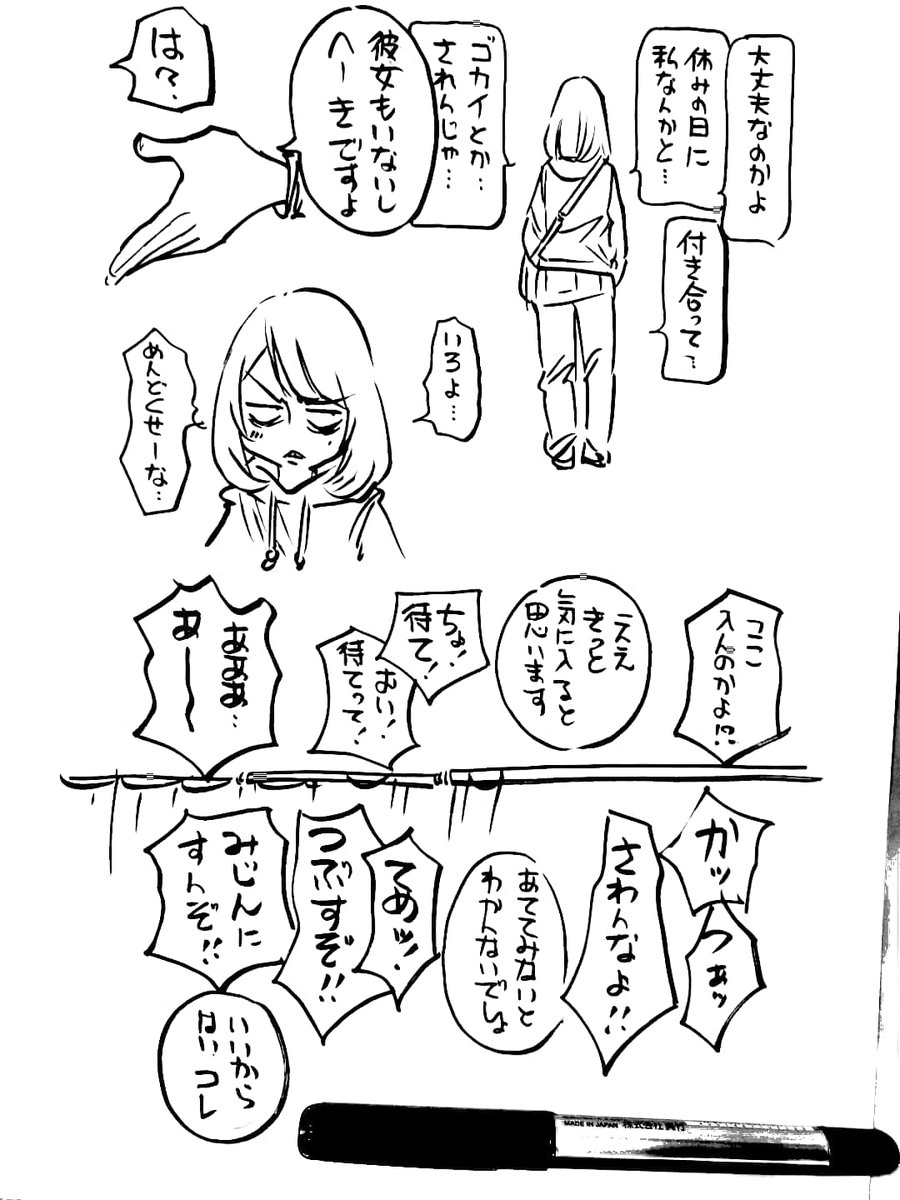 大丈夫なのかよ
休みの日に
私なんかと…
付き合って…
ゴカイとか…
されんじゃ…
彼女もいないし
へーきですよ
は?
いろよ…
めんどくせーな…
ここ
入んのかよ!?
ええ
きっと
気に入ると
思います
ちょ!
待て!
おい!
待てって!
あああ…
あーー
かッ
つぁッ
さわんなよ!!
あててみないと
わかんないでしょ
てめッ!
つぶすぞ!!
みじんに
すんぞ!!
いいから
はい コレ
MADE IN JAPAN 株式会社 呉竹